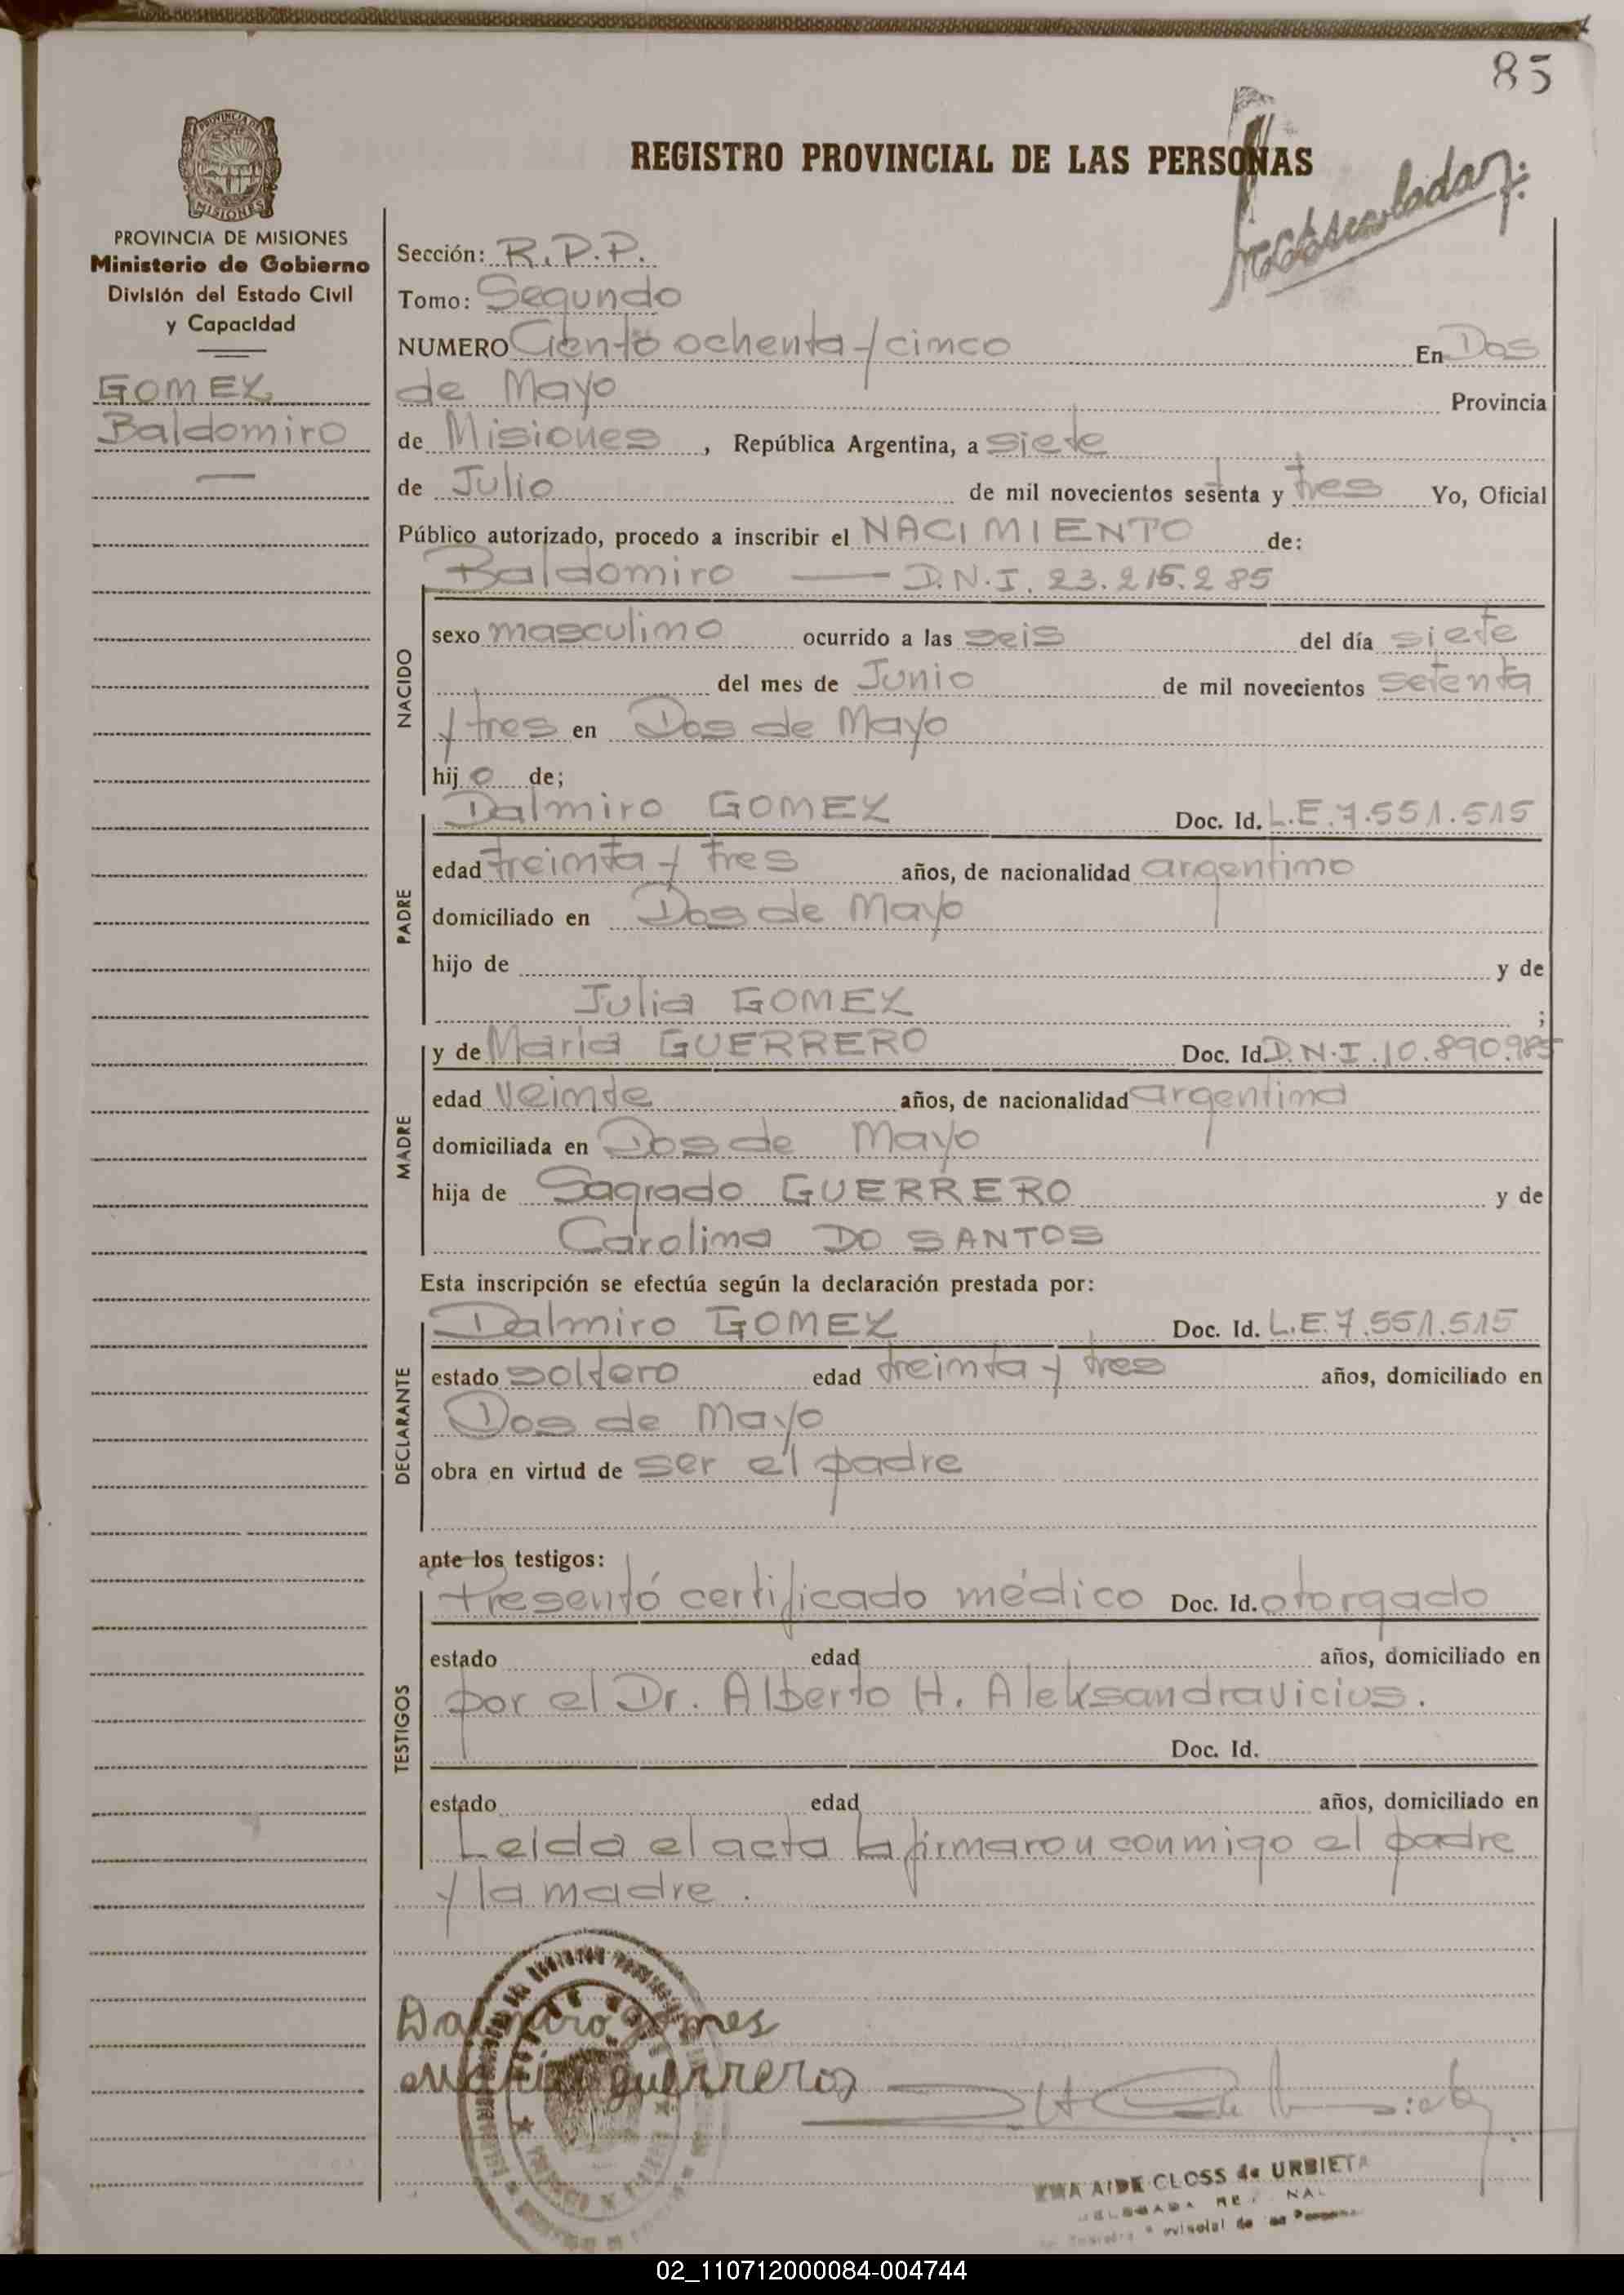 85
REGISTRO PROVINCIAL DE LAS PERSONAS
PROVINCIA DE MISIONES
Ministerio de Gobierno
División del Estado Civil
y Capacidad
GOMEZ
Baldomiro
Sección: R.P.P.
Tomo: Segundo
NUMERO Ciento ochenta y cinco En Dos
de Mayo Provincia
de Misiones, República Argentina, a siete
de Julio de mil novecientos sesenta y tres Yo, Oficial
Público autorizado, procedo a inscribir el NACIMIENTO de:
Baldomiro — D.N.I. 23.215.285
NACIDO
sexo masculino ocurrido a las seis del día siete
del mes de Junio de mil novecientos setenta
y tres en Dos de Mayo
hijo de;
Dalmiro GOMEZ Doc. Id. L.E.7.551.515
PADRE
edad treinta y tres años, de nacionalidad argentino
domiciliado en Dos de Mayo
hijo de y de
Julia GOMEZ ;
y de María GUERRERO Doc. Id. D.N.I.10.890.985
MADRE
edad veinte años, de nacionalidad argentina
domiciliada en Dos de Mayo
hija de Sagrado GUERRERO y de
Carolina DO SANTOS
Esta inscripción se efectúa según la declaración prestada por:
Dalmiro GOMEZ Doc. Id. L.E.7.551.515
DECLARANTE
estado soltero edad treinta y tres años, domiciliado en
Dos de Mayo
obra en virtud de ser el padre
ante los testigos:
Presentó certificado médico Doc. Id. otorgado
TESTIGOS
estado edad años, domiciliado en
por el Dr. Alberto H. Aleksandravicius.
Doc. Id.
estado edad años, domiciliado en
Leida el acta la firmaron conmigo el padre
y la madre.
Dalmiro gomes
maria guerrero
AIDE CLOSS de URBIETA
02_110712000084-004744